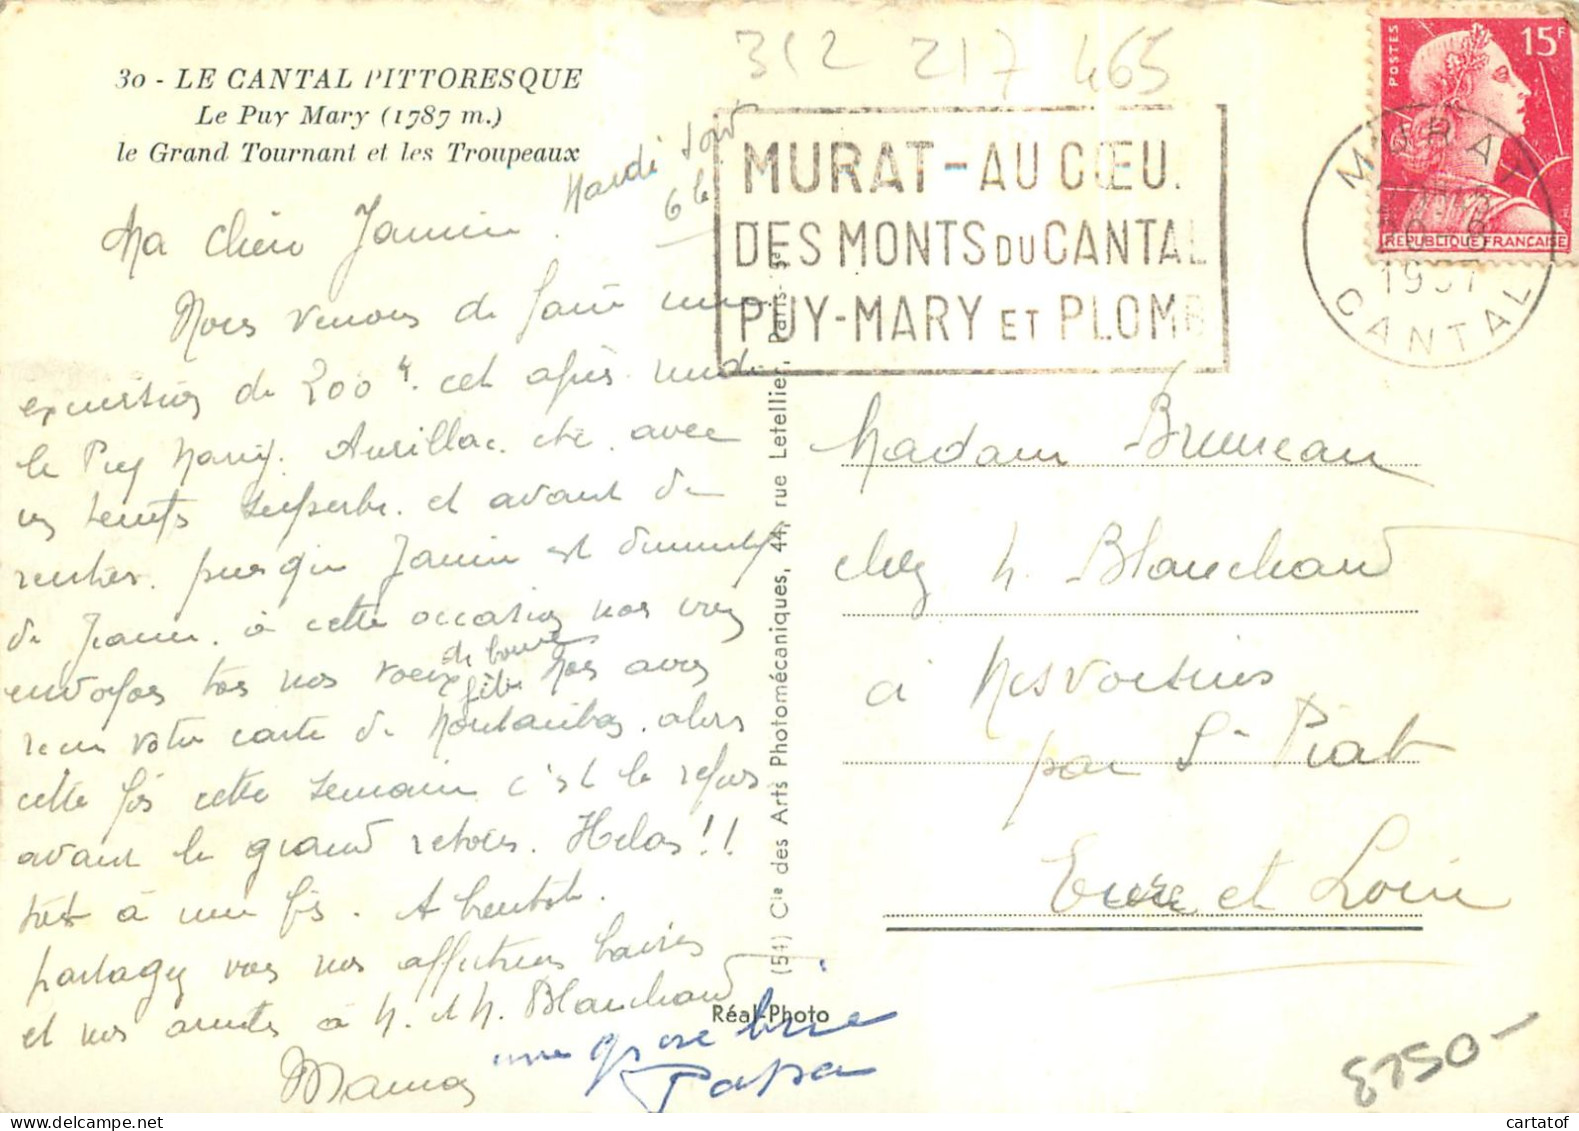 30 - LE CANTAL PITTORESQUE
Le Puy Mary (1787 m.)
le Grand Tournant et les Troupeaux
312 217 465
MURAT - AU CŒU.
DES MONTS DU CANTAL
PUY-MARY ET PLOMB
POSTES
15F
REPUBLIQUE FRANCAISE
MURAT
1957
CANTAL
Mardi soir
6h
Ma chère Janine
Nous venons de faire une
excursion de 200 K. cet après midi
le Puy Mary. Aurillac. etc. avec
un temps superbe. et avant de
rentrer. puisque Janine est
de Jeanne. à cette occasion nos
envoyons tous nos voeux de bonne
fête Nous avons
reçu votre carte de Montauban. alors
cette fois cette semaine c'est le repos
avant le grand retour. Helas!!
tout à une fin. A bientôt.
partagez vous nos affectueux baisers
et nos amitiés à M. et M. Blanchard
Maman
une grosse bise
Papa
Madame Bruneau
chez M. Blanchard
à Mesvoisins
par St Piat
Eure et Loir
(54) Cie des Arts Photomécaniques, 44, rue Letellier, Paris-
Réal-Photo
8750-
cartatof